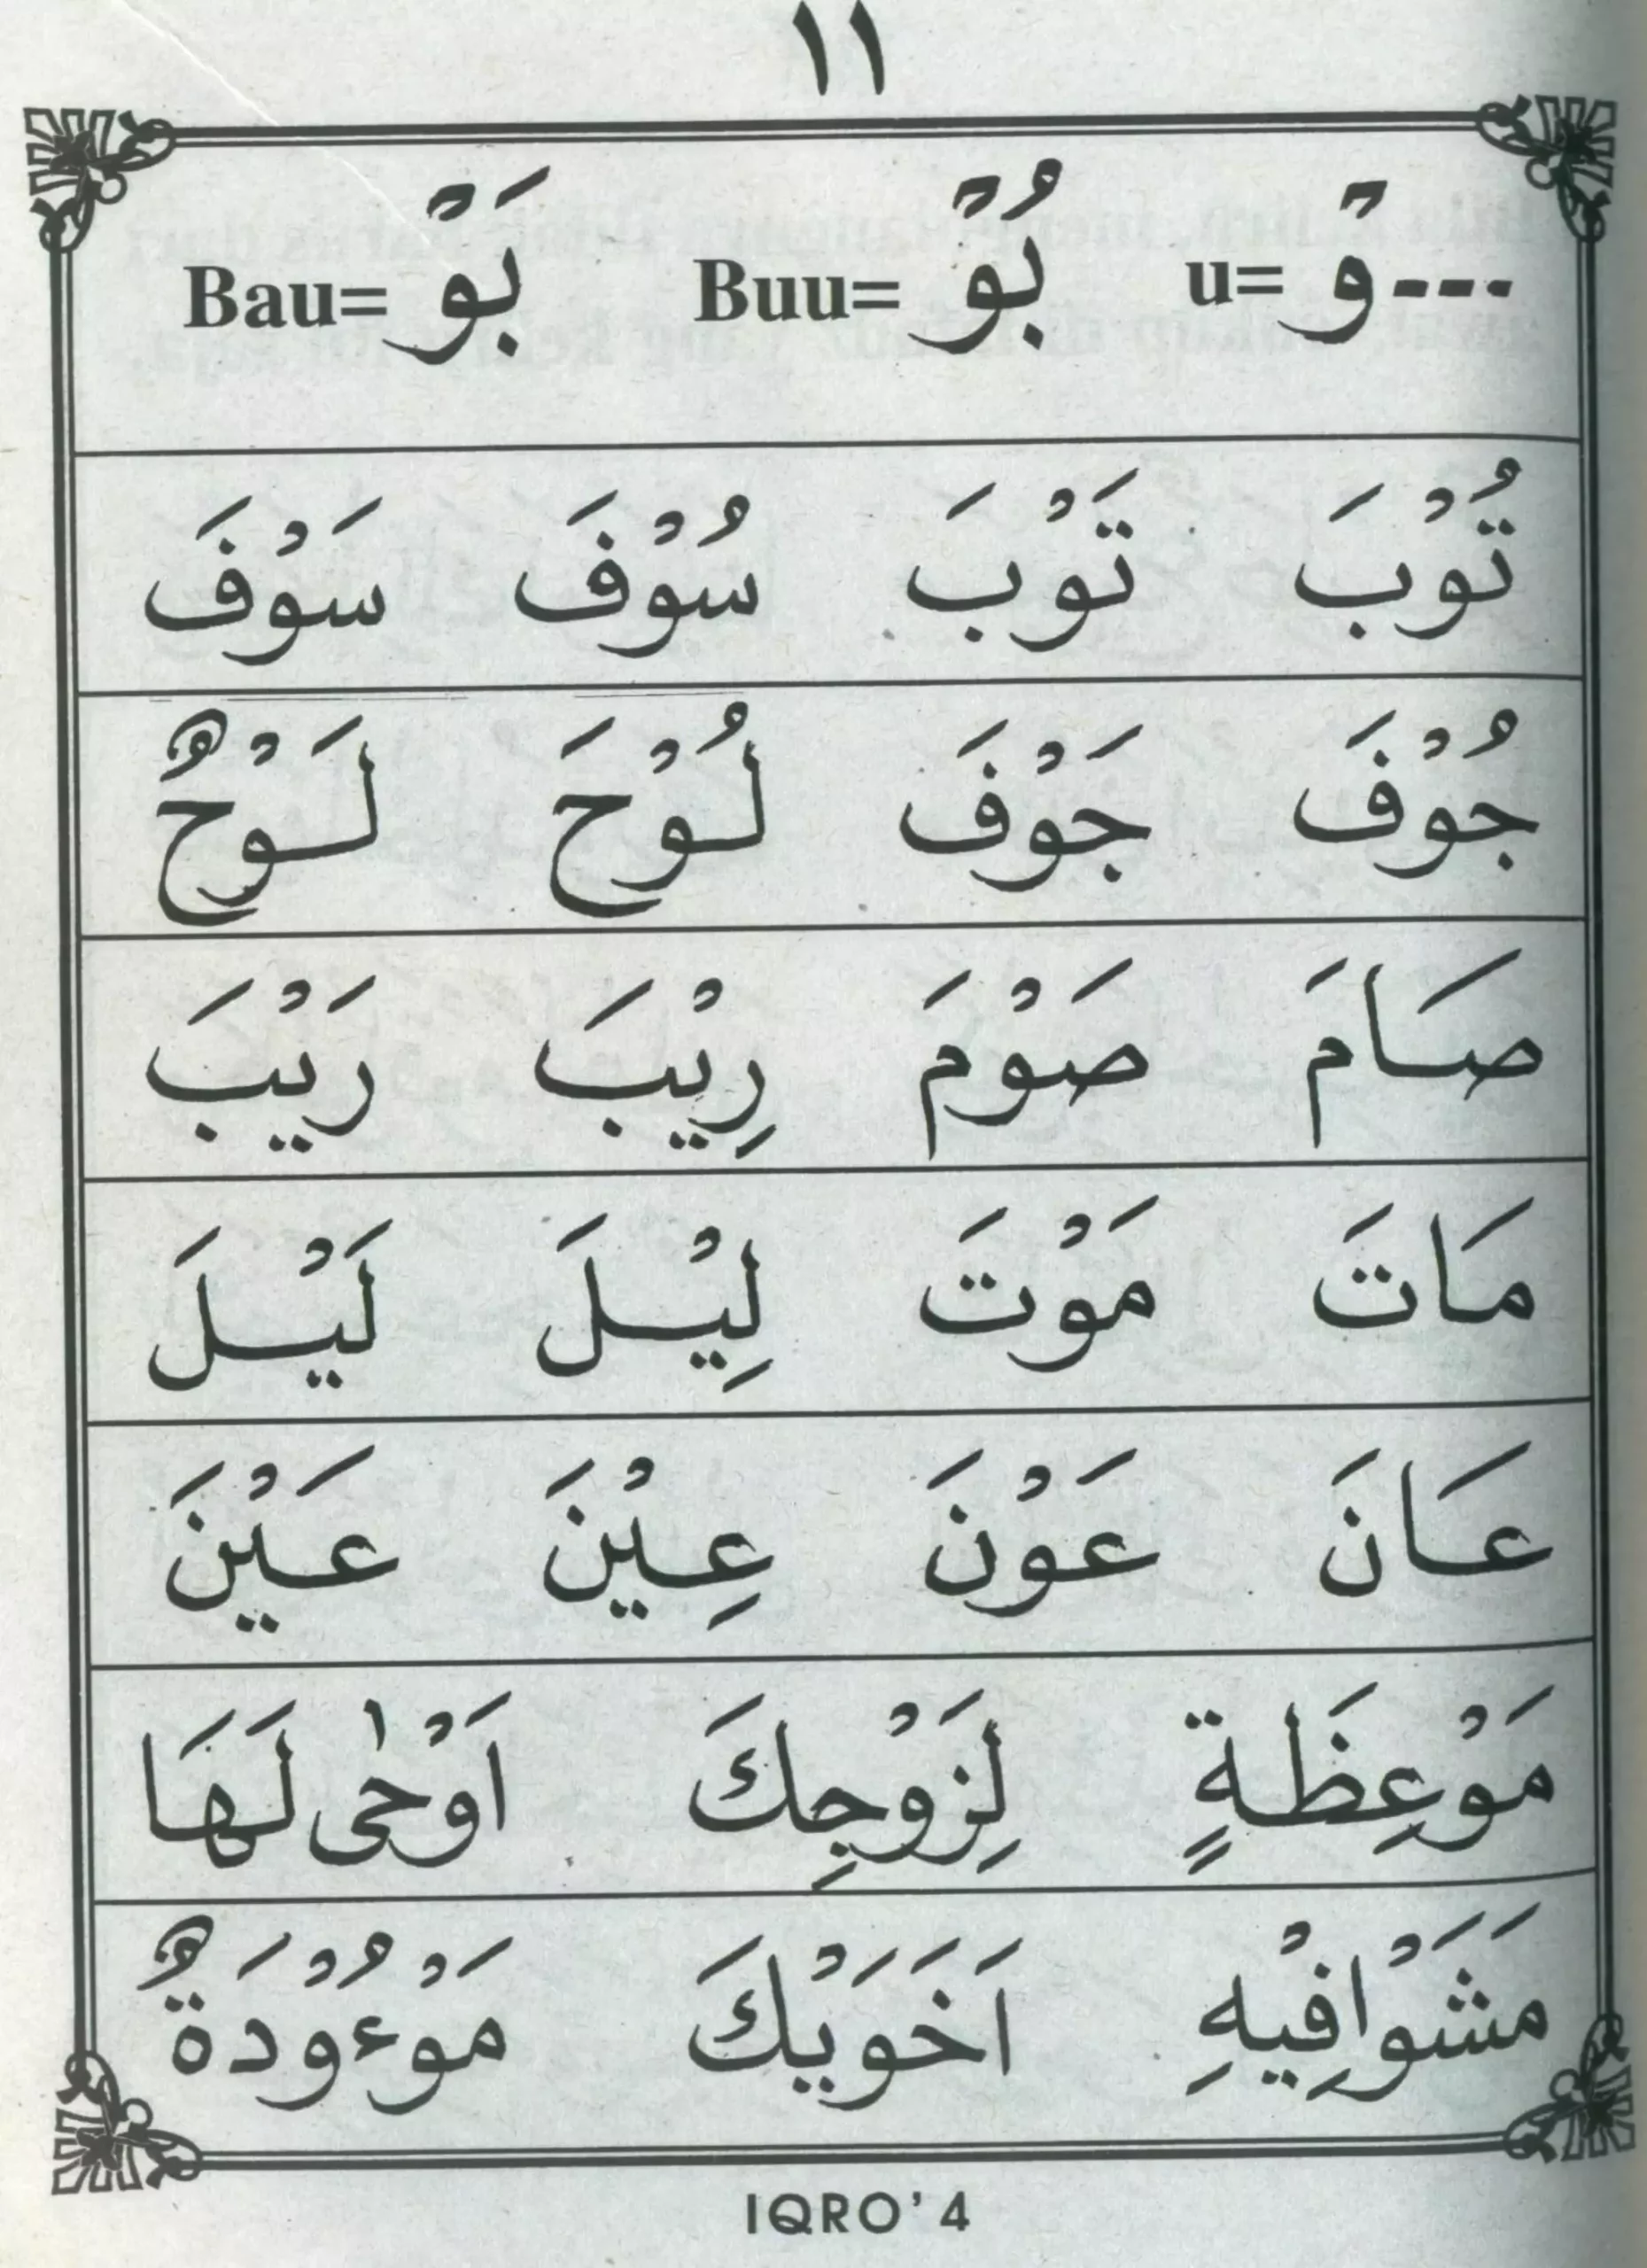 ١١
---وْ =u بُوْ =Buu بَوْ =Bau
تُوْبَ تَوْبَ سُوْفَ سَوْفَ
جُوْفَ جَوْفَ لُوْحَ لَوْحٌ
صَامَ صَوْمَ رِيْبَ رَيْبَ
مَاتَ مَوْتَ لِيْلَ لَيْلَ
عَانَ عَوْنَ عِيْنَ عَيْنَ
مَوْعِظَةٍ لِزَوْجِكَ اَوْحٰى لَهَا
مَشَوْا فِيْهِ اَخَوَيْكَ مَوْءُوْدَةٌ
IQRO' 4